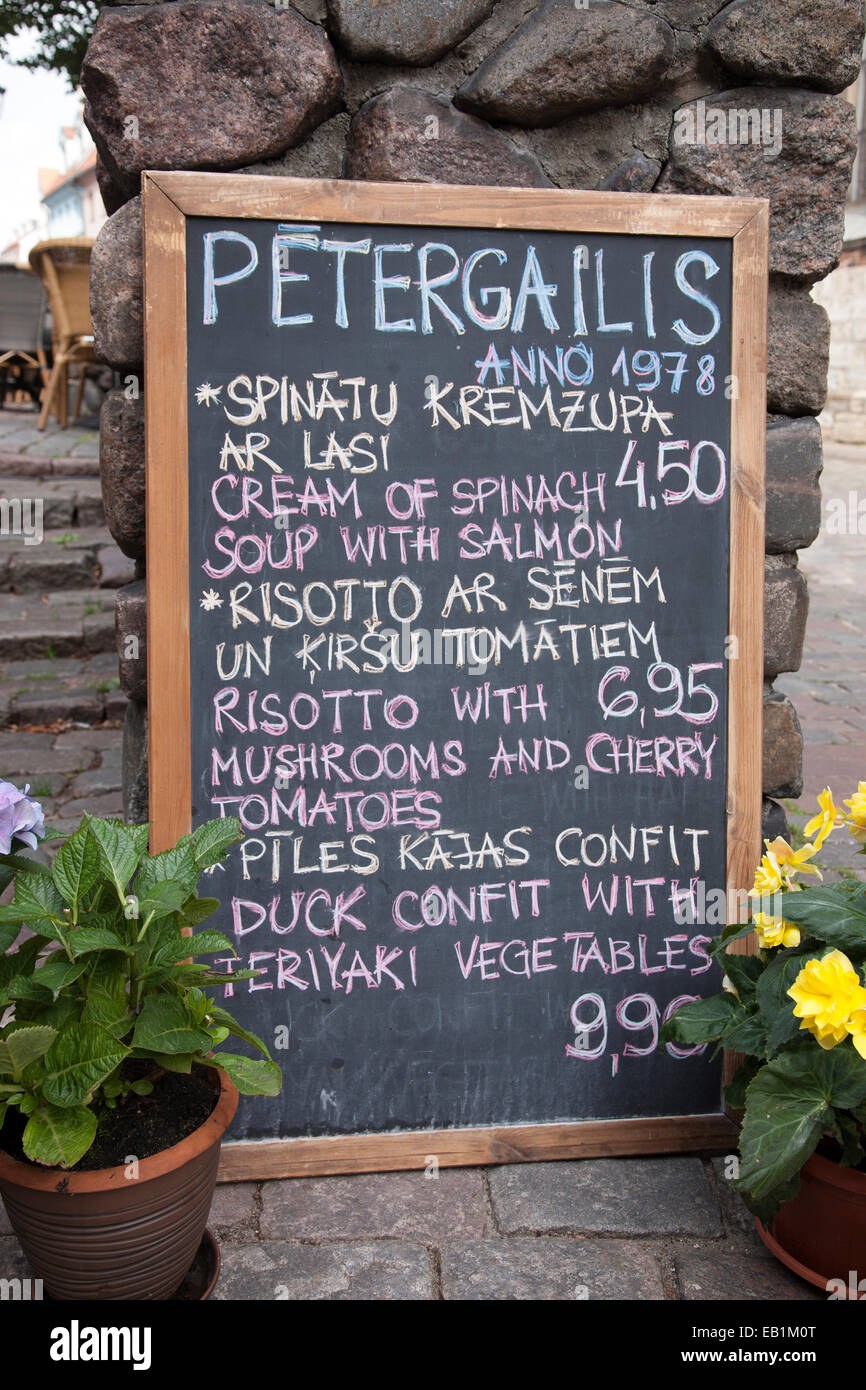 PĒTERGAILIS
ANNO 1978
*SPINĀTU KREMZUPA
AR LASI
CREAM OF SPINACH 4,50
SOUP WITH SALMON
*RISOTTO AR SĒNĒM
UN ĶIRŠU TOMĀTIEM
RISOTTO WITH 6,95
MUSHROOMS AND CHERRY
TOMATOES
*PĪLES KĀJAS CONFIT
DUCK CONFIT WITH
TERIYAKI VEGETABLES
9,90
alamy
Image ID: EB1M0T
www.alamy.com